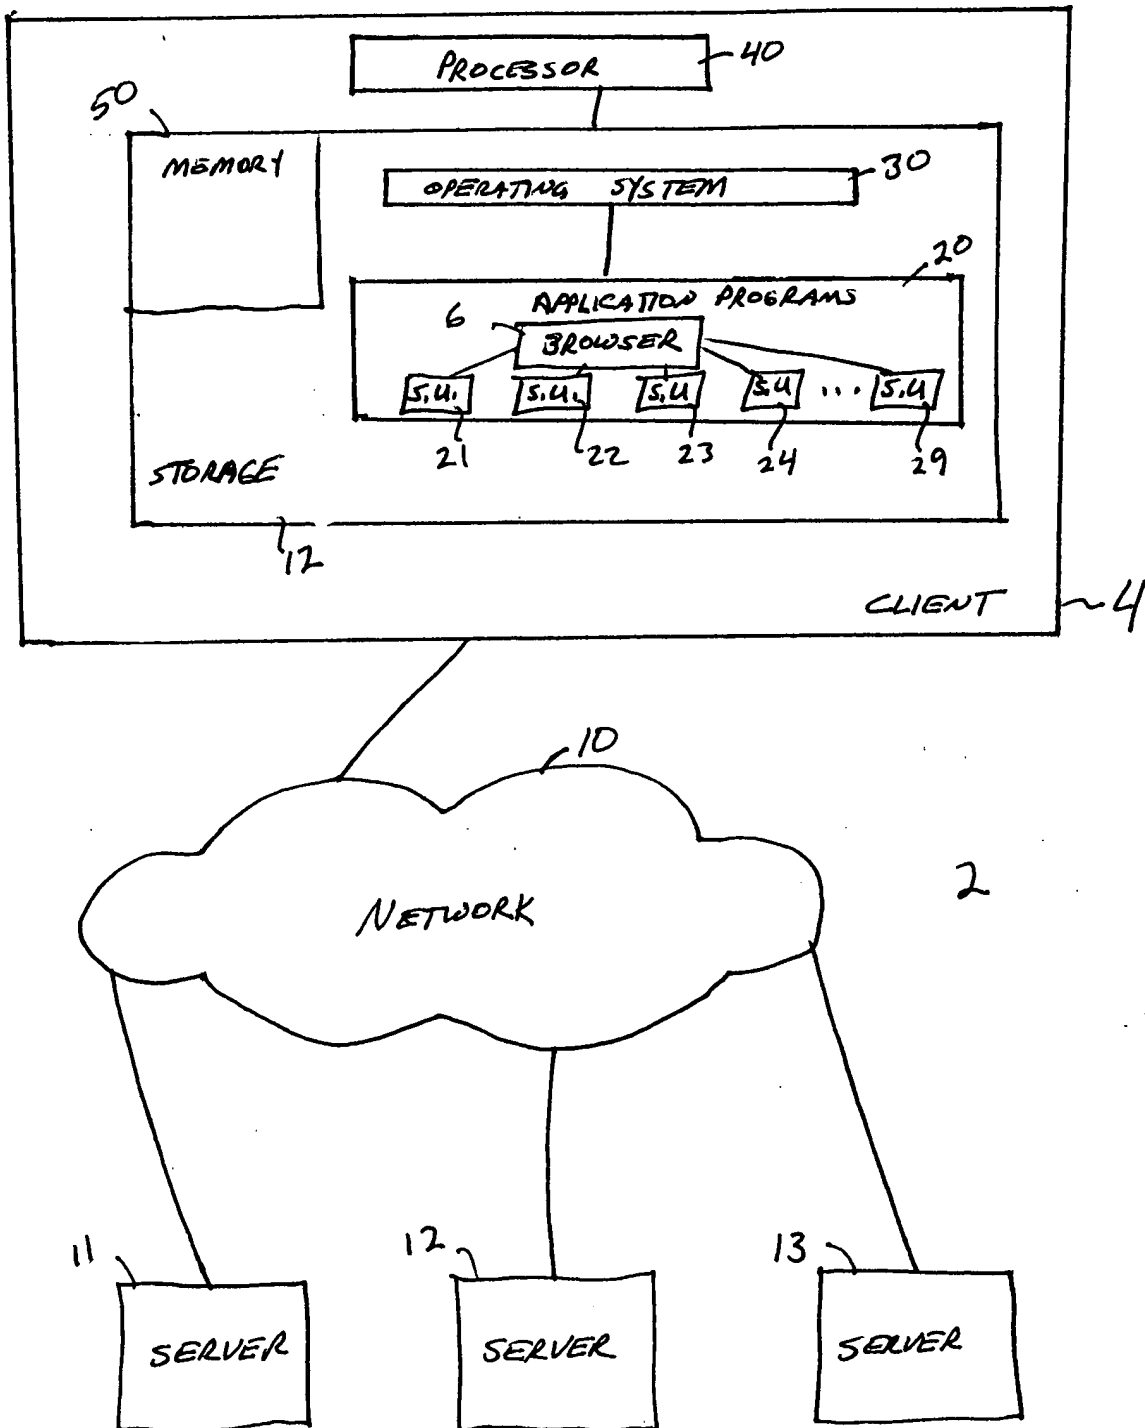 PROCESSOR
40
50
MEMORY
OPERATING SYSTEM
30
20
APPLICATION PROGRAMS
6
BROWSER
S.U.
S.U.
S.U
S.U
...
S.U
21
22
23
24
29
STORAGE
12
CLIENT
4
10
NETWORK
2
11
12
13
SERVER
SERVER
SERVER